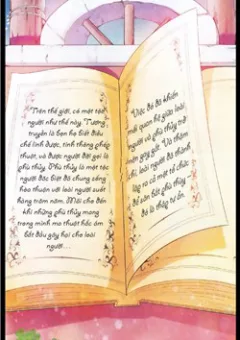 Trên thế giới, có một tộc
người như thế này. Tương
truyền là bọn họ biết điều
chế linh dược, tinh thông phép
thuật, và được người đời gọi là
phù thủy. Phù thủy là một tộc
người đặc biệt đã chung sống
hòa thuận với loài người suốt
hàng trăm năm. Mãi cho đến
khi những phù thủy mang
trong mình ma thuật hắc ám
bắt đầu gây hại cho loài
người......
Việc đó đã khiến
mối quan hệ giữa loài
người và phù thủy trở
nên gay gắt. Và thậm
chí, loài người đã thành
lập ra cả một tổ chức
để săn bắt phù thủy
đó là thập tự ấn.